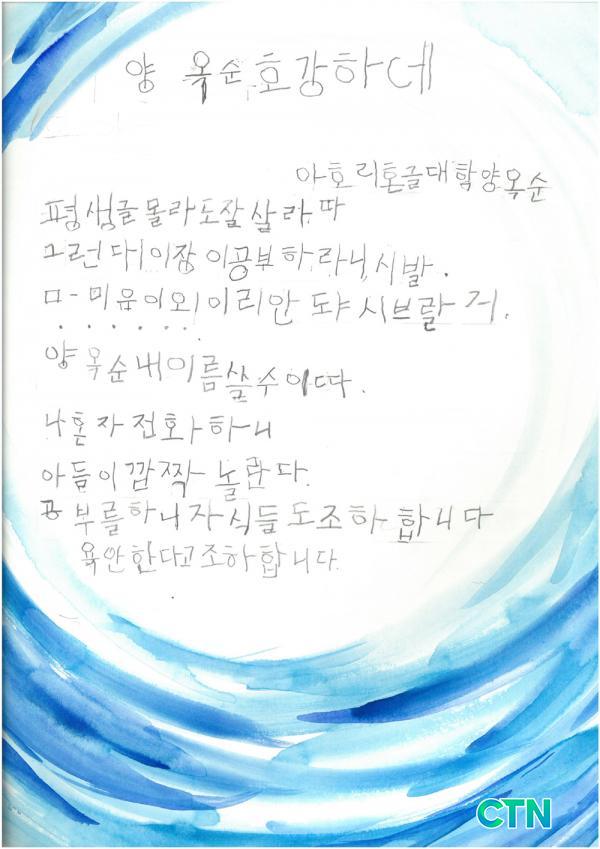 양 옥순 호강하네
아호리 혼글대학 양옥순
평생글몰라도잘살라따
그런다 이장이공부하라니, 시발.
ㅁ-미움이 외 이리안 도냐 시브랄거.
양옥순내이름쓸수이따.
나혼자전화하니
아들이깜짝 놀란다.
공부를하니자식들도조하 합니다
욕안한다고조하합니다.
CTN